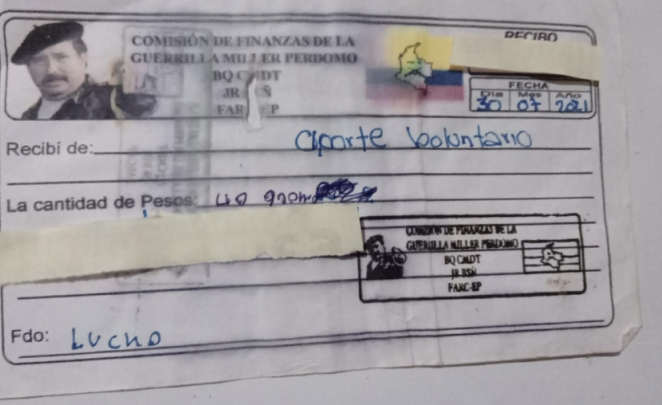 COMISIÓN DE FINANZAS DE LA
GUERRILLA MILLER PERDOMO
BQ CMDT
JR
FARC-EP
RECIBO
FECHA
Dia Mes Año
30 07 2021
Recibí de: aporte voluntario
La cantidad de Pesos: 40
COMISIÓN DE FINANZAS DE LA
GUERRILLA MILLER PERDOMO
BQ CMDT
JR BSÑ
FARC-EP
Fdo: Lucho